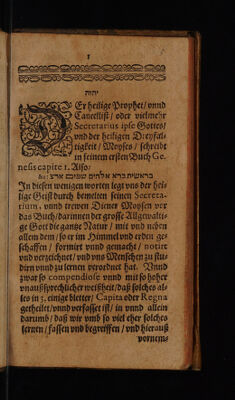 1
יהוה
DEr heilige Prophet / vnnd
Cancellist / oder vielmehr
Secretarius ipse Gottes /
vnd der heiligen Dreyfal-
tigkeit / Moyses / schreibt
in seinem ersten Buch Ge-
nesis capite 1. Also:
בראשית ברא אלהים שמים ארצ: &c
In diesen wenigen worten legt vns der hei-
lige Geist durch bemelten seinen Secreta-
rium, vnnd trewen Diener Moysen vor
das Buch / darinnen der grosse Allgewalti-
ge Gott die gantze Natur / mit vnd neben
allem dem / so er im Himmel vnd erden ge-
schaffen / formirt vnnd gemacht / notirt
vnd verzeichnet / vnd vns Menschen zu stu-
dirn vnnd zu lernen verordnet hat. Vnnd
zwar so compendiosè vnnd mit so hoher
vnaußsprechlicher weißheit / daß solches al-
les in 3. einige bletter / Capita oder Regna
getheilet / vnnd verfasset ist / in vnnd allein
darumb / daß wir vmb so viel eher solches
lernen / fassen vnd begreiffen / vnd hierauß
vornem-